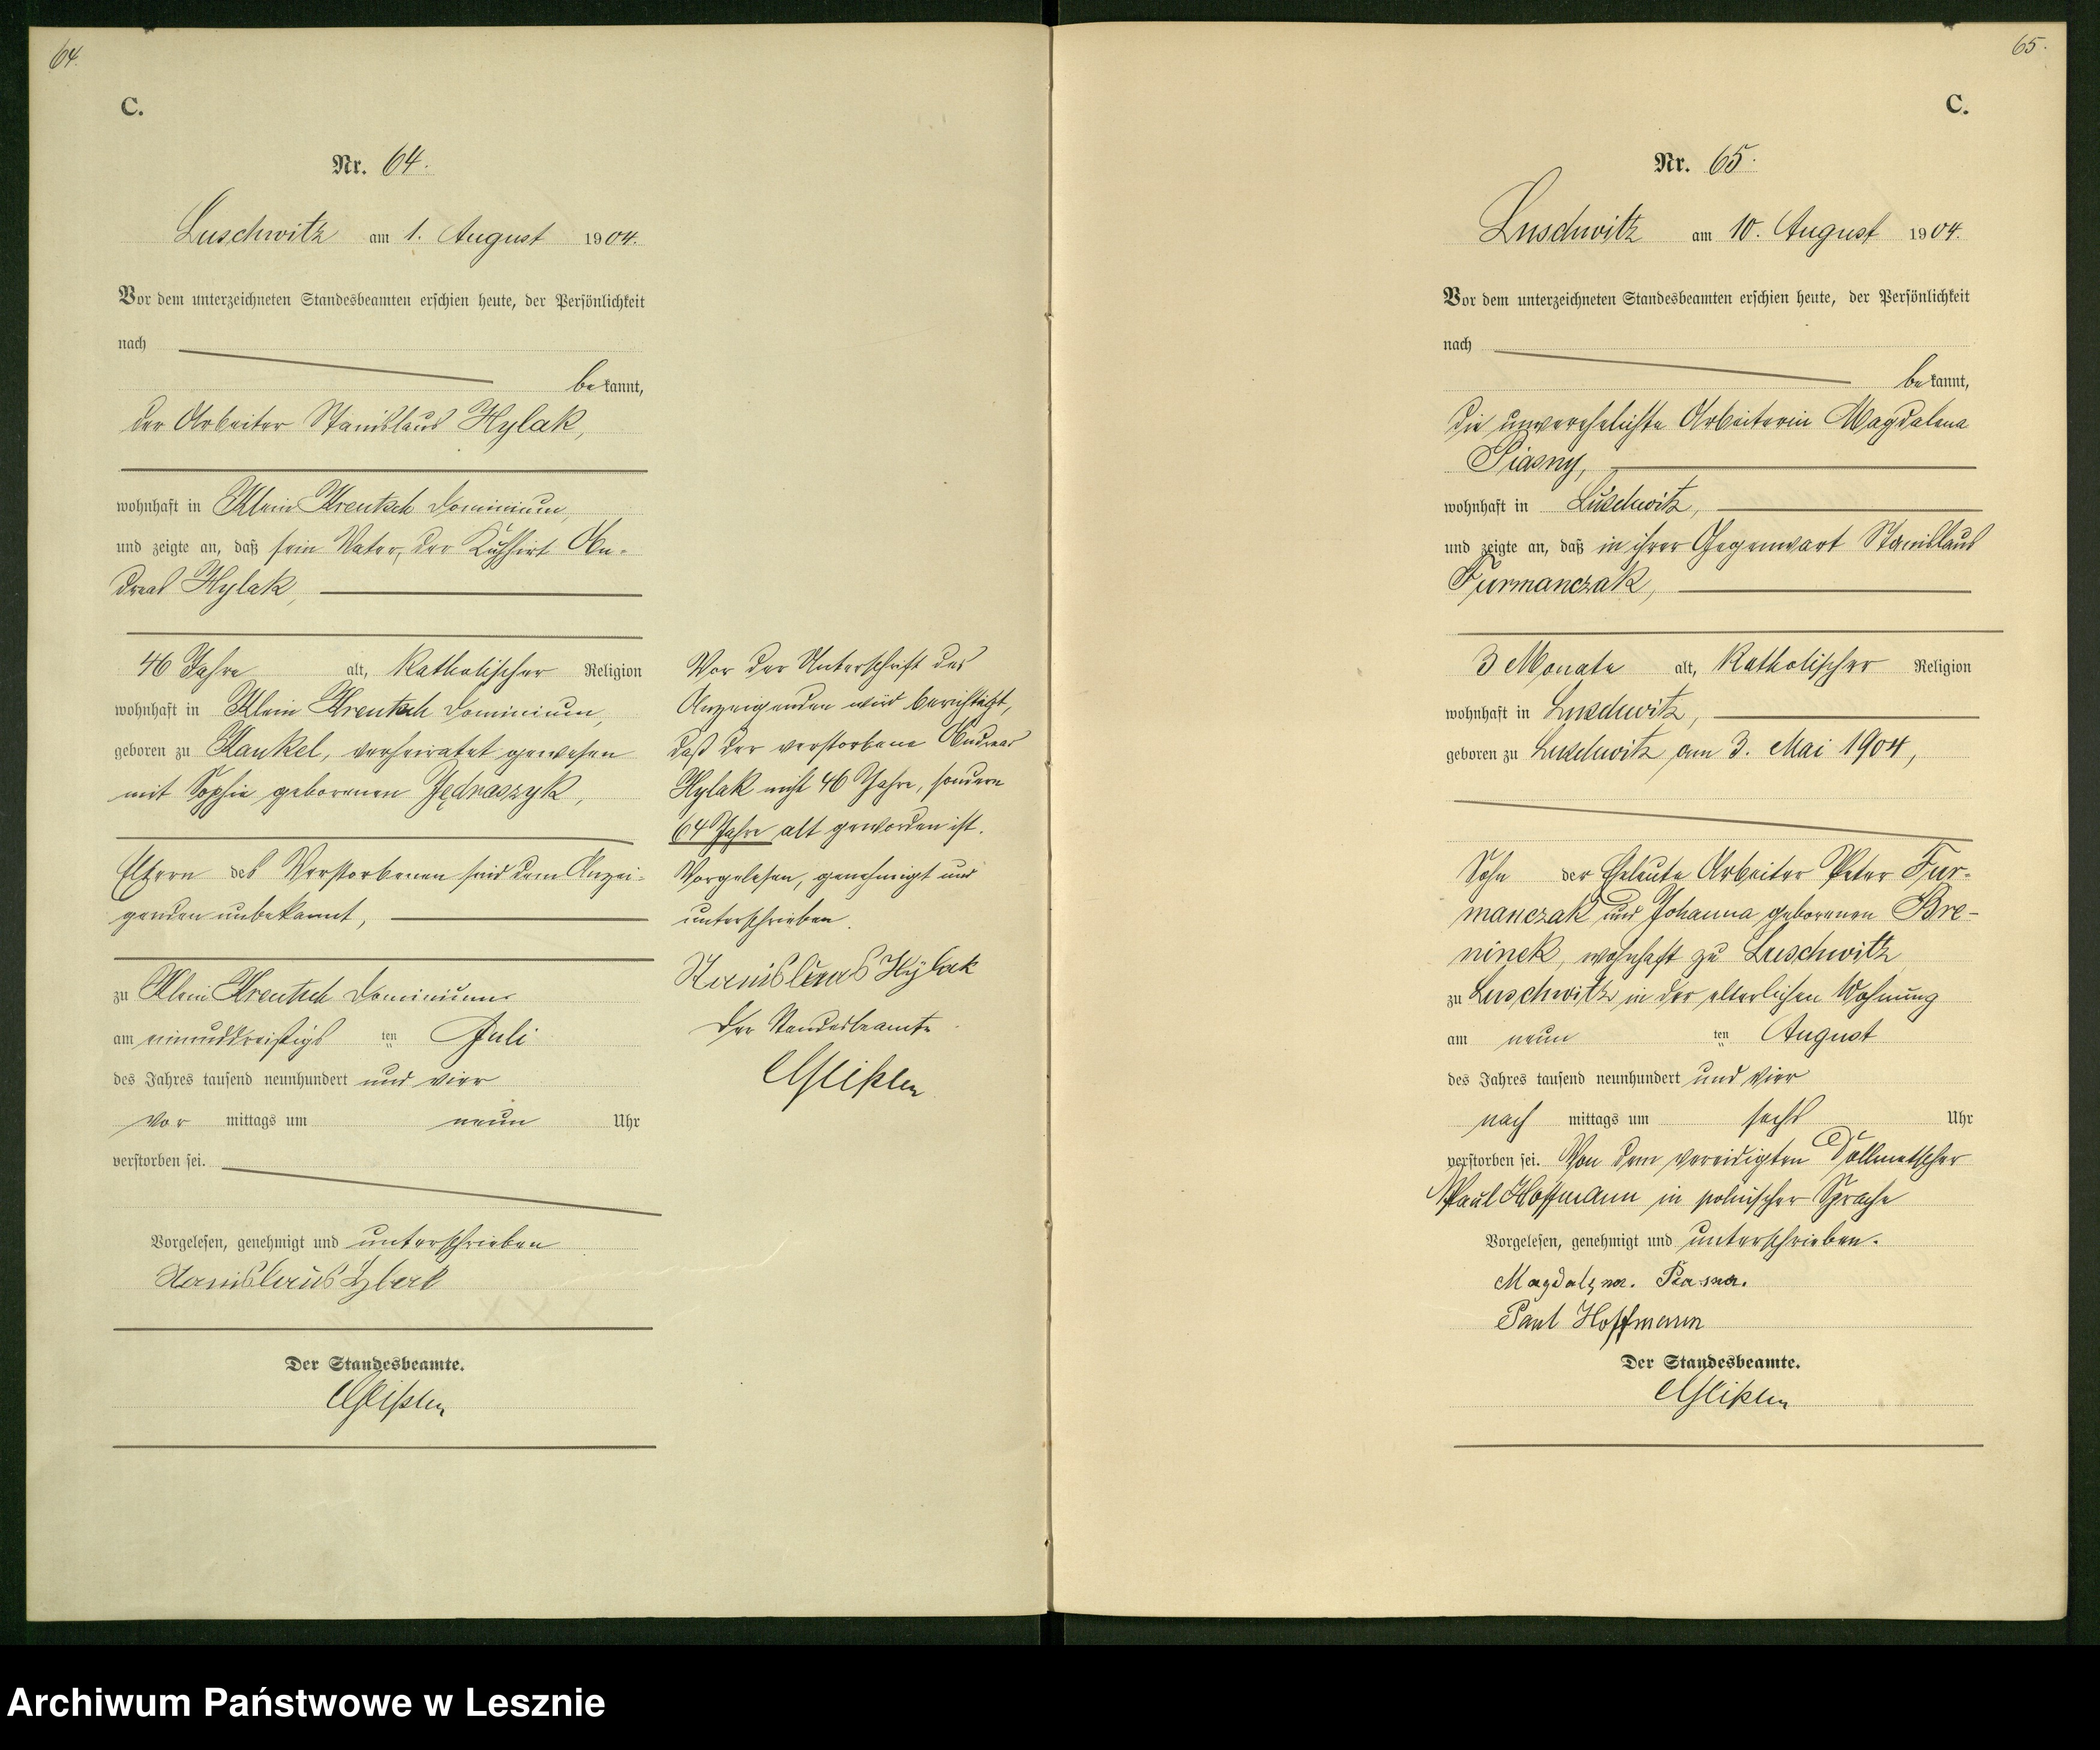 64.
C.
Nr. 64.
Luschwitz am 1. August 1904.
Vor dem unterzeichneten Standesbeamten erschien heute, der Persönlichkeit
nach
bekannt,
der Arbeiter Stanislaus Hylak,
wohnhaft in Klein Kreutsch Dominium,
und zeigte an, daß sein Vater, der Kuhhirt An-
dreas Hylak,
46 Jahre alt, katholischer Religion
wohnhaft in Klein Kreutsch Dominium,
geboren zu Kankel, verheiratet gewesen
mit Sophie geborenen Jędraszyk,
Eltern des Verstorbenen sind dem Anzei-
genden unbekannt,
zu Klein Kreutsch Dominium
am einunddreißigs ten Juli
des Jahres tausend neunhundert und vier
Vor mittags um neun Uhr
verstorben sei.
Vorgelesen, genehmigt und unterschrieben
Stanislaus
Der Standesbeamte.
Vor der Unterschrift des
Anzeigenden wird berichtigt,
daß der verstorbene Andreas
Hylak nicht 46 Jahre, sondern
64 Jahre alt geworden ist.
Vorgelesen, genehmigt und
unterschrieben.
Stanislaus Hylak
Der Standesbeamte
65.
C.
Nr. 65.
Luschwitz am 10. August 1904.
Vor dem unterzeichneten Standesbeamten erschien heute, der Persönlichkeit
nach
bekannt,
die unverehelichte Arbeiterin Magdalena
Piasny,
wohnhaft in Luschwitz,
und zeigte an, daß in ihrer Gegenwart Stanislaus
Furmanczak,
3 Monate alt, katholischer Religion
wohnhaft in Luschwitz,
geboren zu Luschwitz am 3. Mai 1904,
Sohn der Eheleute Arbeiter Peter Fur-
manczak und Johanna geborenen Bre-
ninek, wohnhaft zu Luschwitz
zu Luschwitz in der elterlichen Wohnung
am neun ten August
des Jahres tausend neunhundert und vier
nach mittags um sechs Uhr
verstorben sei. Von dem vereidigten Dollmetscher
Paul Hoffmann in polnischer Sprache
Vorgelesen, genehmigt und unterschrieben.
Paul Hoffmann
Der Standesbeamte.
Archiwum Państwowe w Lesznie